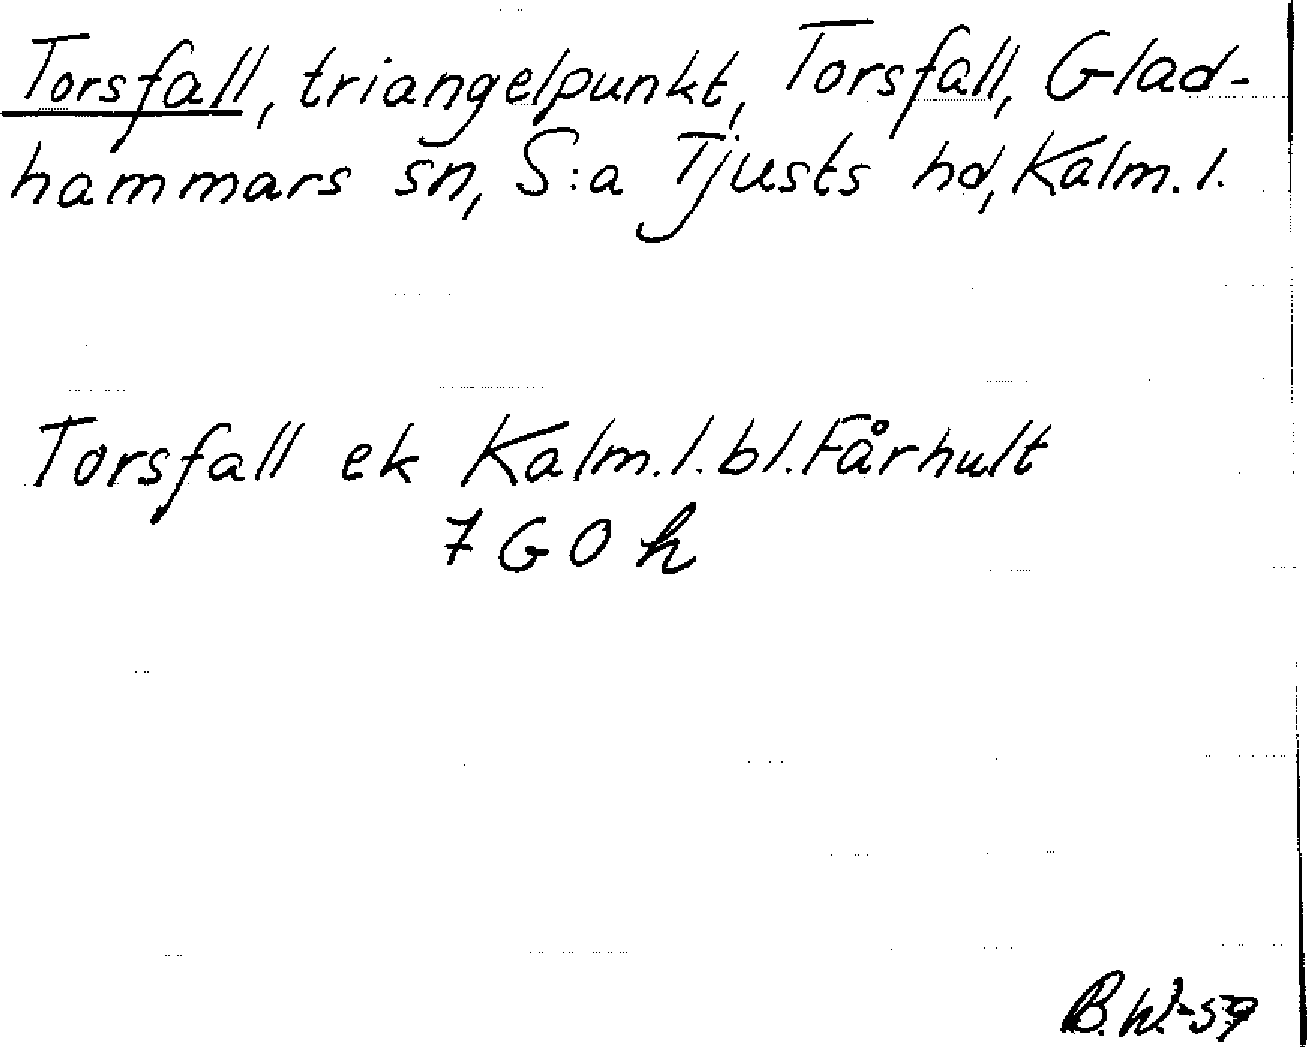 Torsfall, triangelpunkt, Torsfall, Glad-
hammars sn, S:a Tjusts hd, Kalm. l.
Torsfall ek Kalm. l. bl. Fårhult
7 G O h
B.W.-59